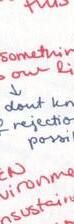 this
somethin
s our li
↓
dont kn
f rejectio
possi
EN
vironme
nsustain